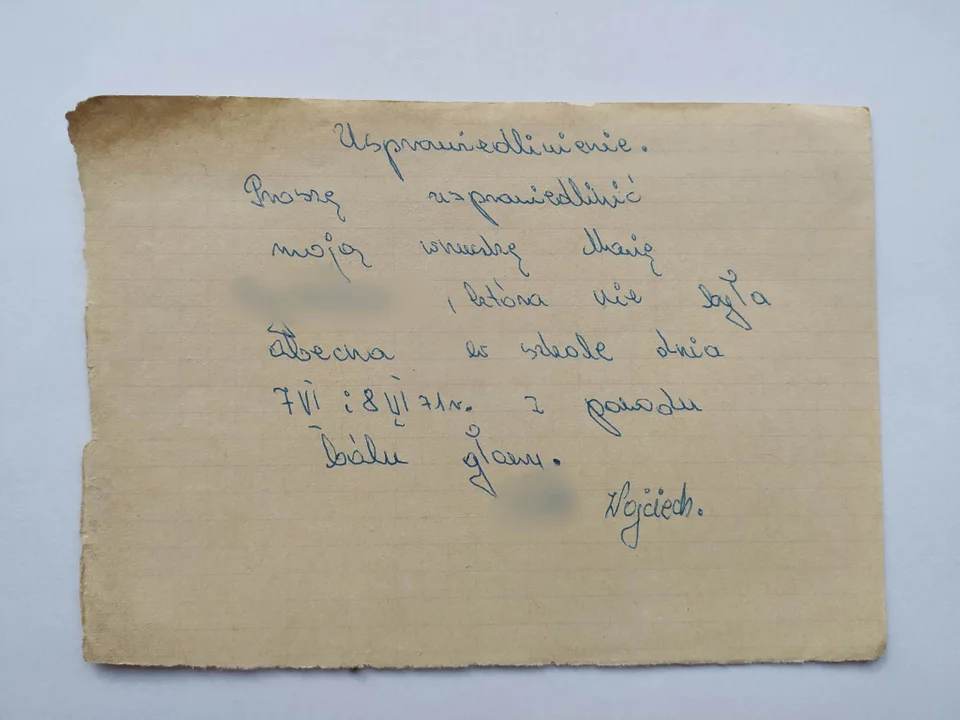 Usprawiedliwienie.
Proszę usprawiedliwić
moją wnuczkę Manię
, która nie była
obecna w szkole dnia
7 VI i 8 VI 71 r. z powodu
bólu głowy.
Wojciech.